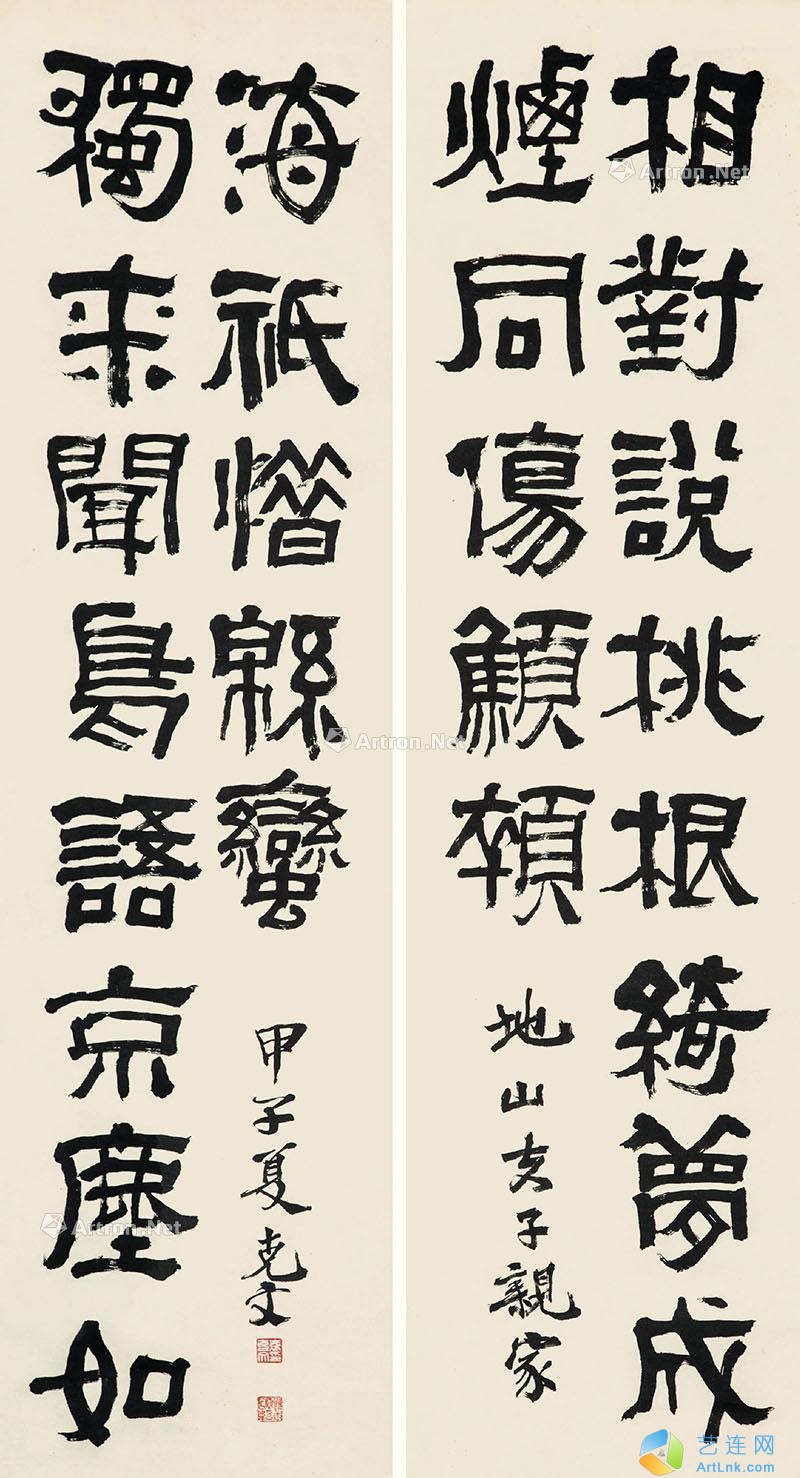 相對說桃根綺夢成
煙同傷顦顇
地山子親家
獨來聞鳥語京塵如
海祇憯緜蠻
甲子夏克文
Artron.Net
Artron.Net
Artron.Net
艺连网
ArtLnk.com